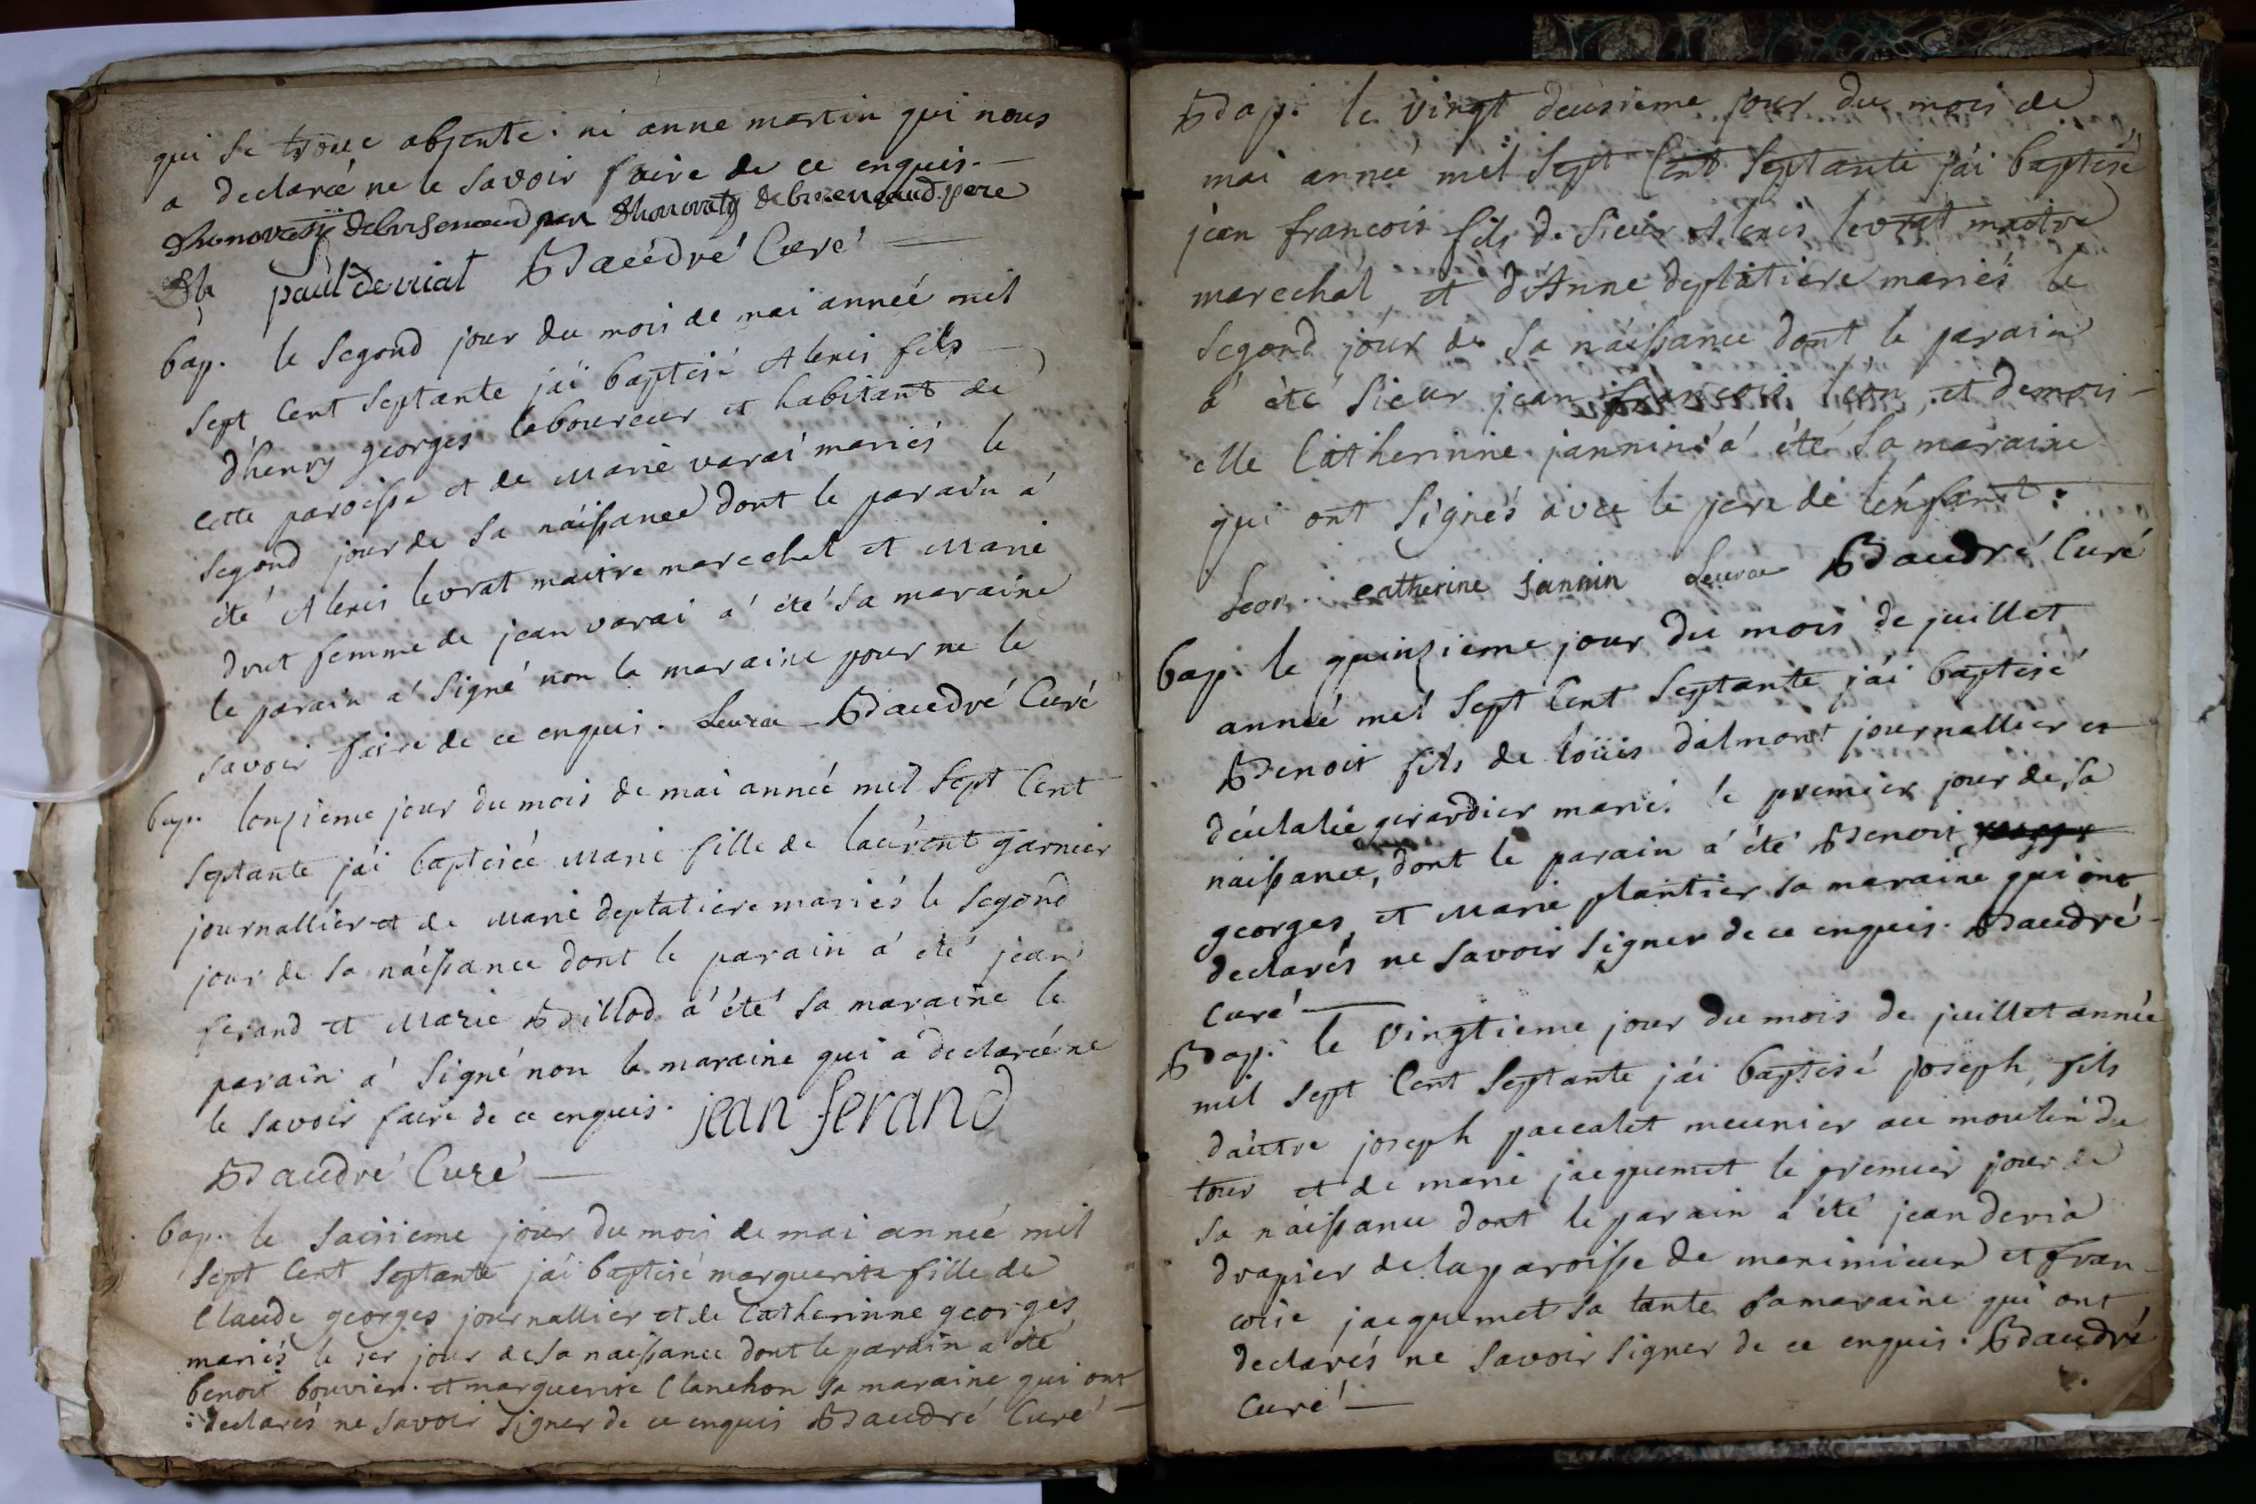 qui se troue absente. ni anne martin qui nous
a declareé ne le savoir faire de ce enquis.
paul deviat Baudré Curé
bap. le segond jour du mois de mai anneé mil
sept Cent septante jái baptisé Alexis fils
d'henry georges laboureur et habitant de
cette paroisse et de Marie varai mariés le
segond jour de sa náissance dont le parain á
été Alexis levrat maitre marechal et Marie
drut femme de jean varai á été sa maraine
le parain á signé non la maraine pour ne le
savoir faire de ce enquis. Leurat Baudré Curé
bap. lonzieme jour du mois de mai anneé mil sept Cent
septante jái baptiseé Marie fille de laurent garnier
journallier et de Marie deplatiere mariés le segond
jour de sa náissance dont le parain á été jean
ferand et Marie Billod á été sa maraine le
parain á signé non la maraine qui a declareé ne
le savoir faire de ce enquis. jean ferand
Baudré Curé
bap. le saisieme jour du mois de mai anneé mil
sept Cent septante jái baptisé marguerite fille de
Claude georges journallier et de Catherinne georges
mariés le 1er jour de sa naissance dont le parain a été
benoit bouvier. et marguerite Clanchon sa maraine qui ont
declarés ne savoir signer de ce enquis Baudré Curé
Bap. le vingt deusieme jour du mois de
mai anneé mil sept Cent septante jái baptisé
jean francois fils de sieur Alexis levrat maitre
marechal et d'Anne deplatiere mariés le
segond jour de sa náissance dont le parain
á été sieur jean francois leon, et demois-
elle Catherinne jannin á été sa maraine
qui ont signés avec le pere de lenfant:
Leon catherine Jannin Leurat Baudré Curé
bap. le quinzieme jour du mois de juillet
anneé mil sept Cent septante jái baptisé
Benoit fils de loüis dalmont journallier et
déulalie girardier mariés le premier jour de sa
naissance, dont le parain á été Benoit
georges, et Marie plantier sa maraine qui ont
declarés ne savoir signer de ce enquis. Baudré
Curé
Bap. le vingtieme jour du mois de juillet anneé
mil sept Cent septante jái baptisé joseph fils
dautre joseph paccalet meunier au moulin du
tour et de marie jacquemet le premier jour de
sa náissance dont le parain á été jean deria
drapier de la paroisse de meximieux et fran-
coise jacquemet sa tante sa maraine qui ont
declarés ne savoir signer de ce enquis. Baudré
Curé